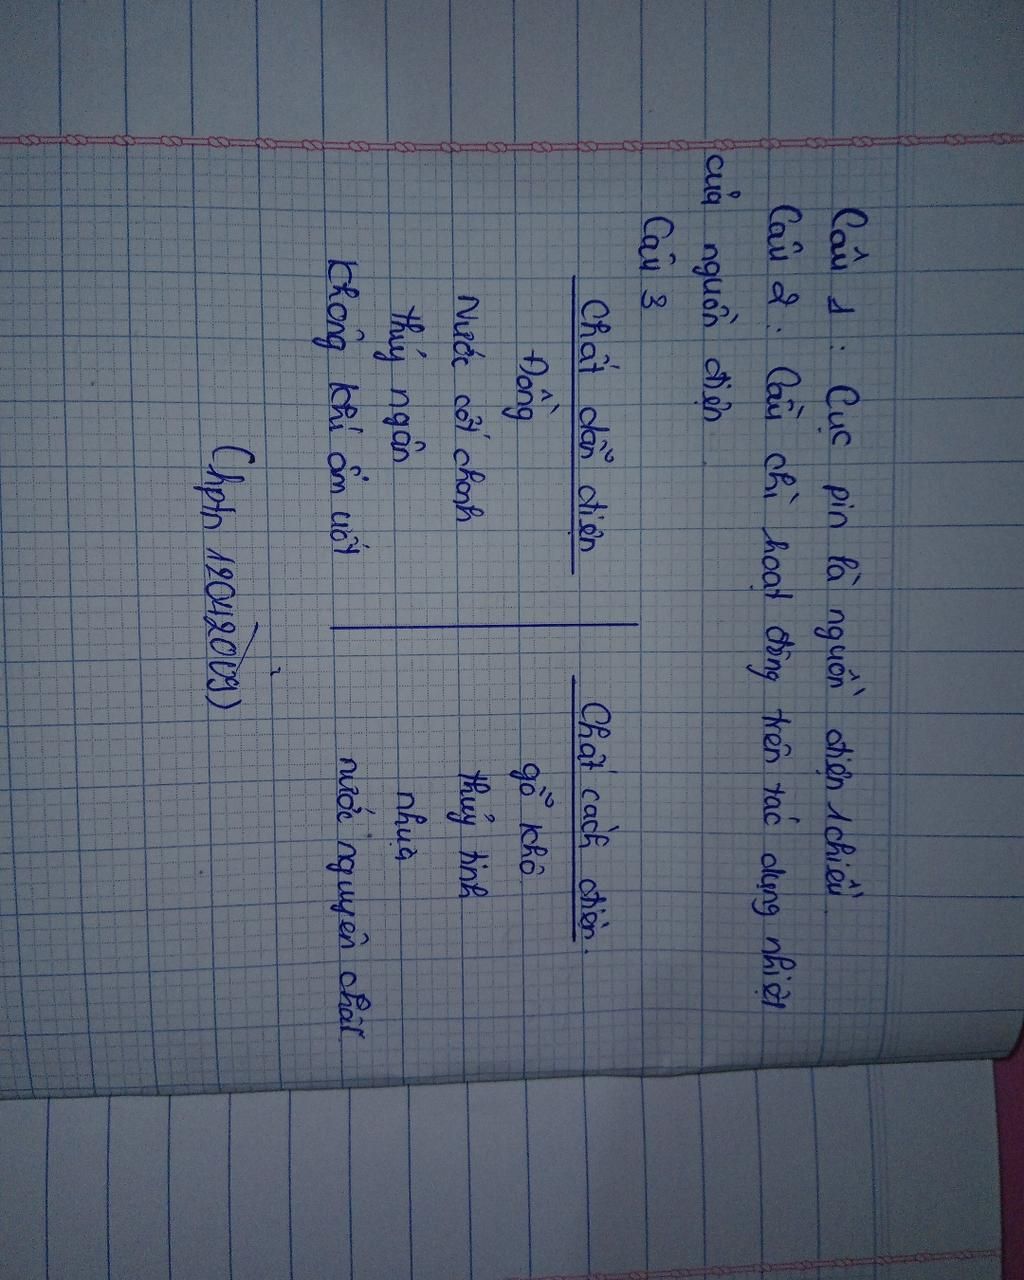 Câu 1 : Cục pin là nguồn điện 1 chiều.
Câu 2 : Cầu chì hoạt động trên tác dụng nhiệt
của nguồn điện
Câu 3
Chất dẫn điện Chất cách điện.
Đồng gỗ khô
Nước cốt chanh thuỷ tinh
thuỷ ngân nhựa
không khí ẩm ướt nước nguyên chất
Chptn 12042009)